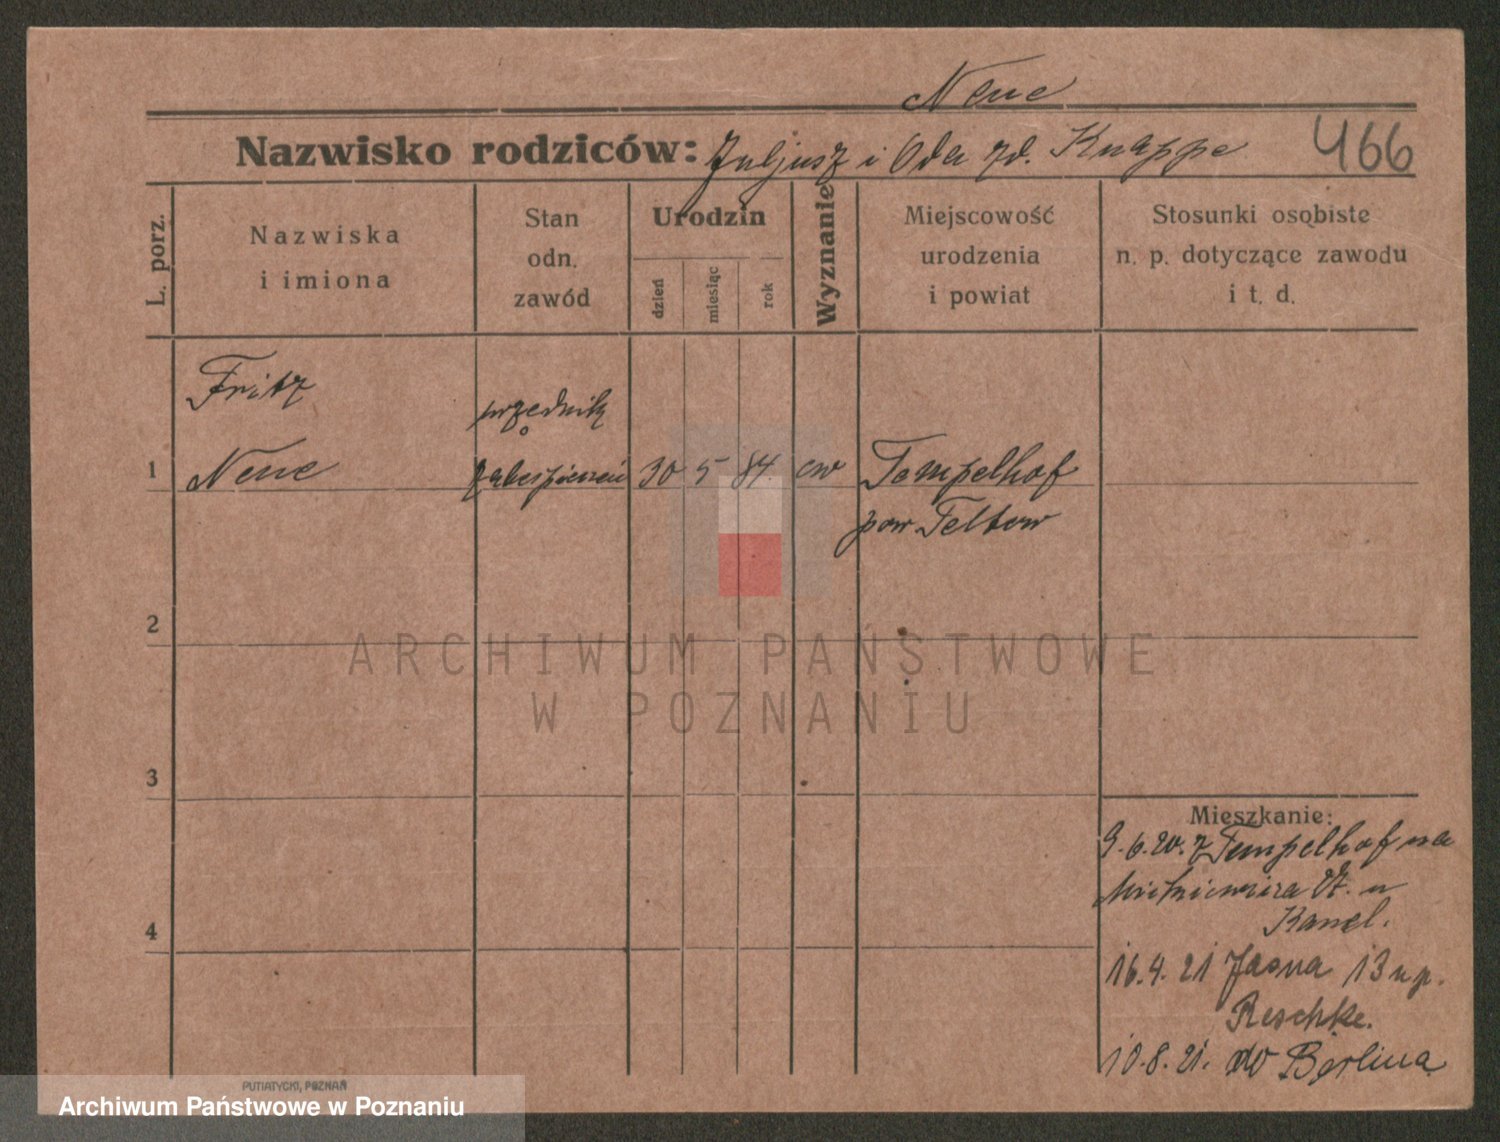 Neue
Nazwisko rodziców: Juljusz i Oda zd. Knappe
466
L. porz.
Nazwiska
i imiona
Stan
odn.
zawód
Urodzin
dzień
miesiąc
rok
Wyznanie
Miejscowość
urodzenia
i powiat
Stosunki osobiste
n. p. dotyczące zawodu
i t. d.
Fritz
urzędnik
1 Neue zabezpieczeń 30 5 84. ew Tempelhof
pow Teltow
2
ARCHIWUM PAŃSTWOWE
W POZNANIU
3
Mieszkanie:
9.6.20. z Tempelhof na
27. u
16.4.21 Jasna 13 u p.
Reschke.
10.8.21. do Berlina
4
PUTIATYCKI, POZNAŃ
Archiwum Państwowe w Poznaniu